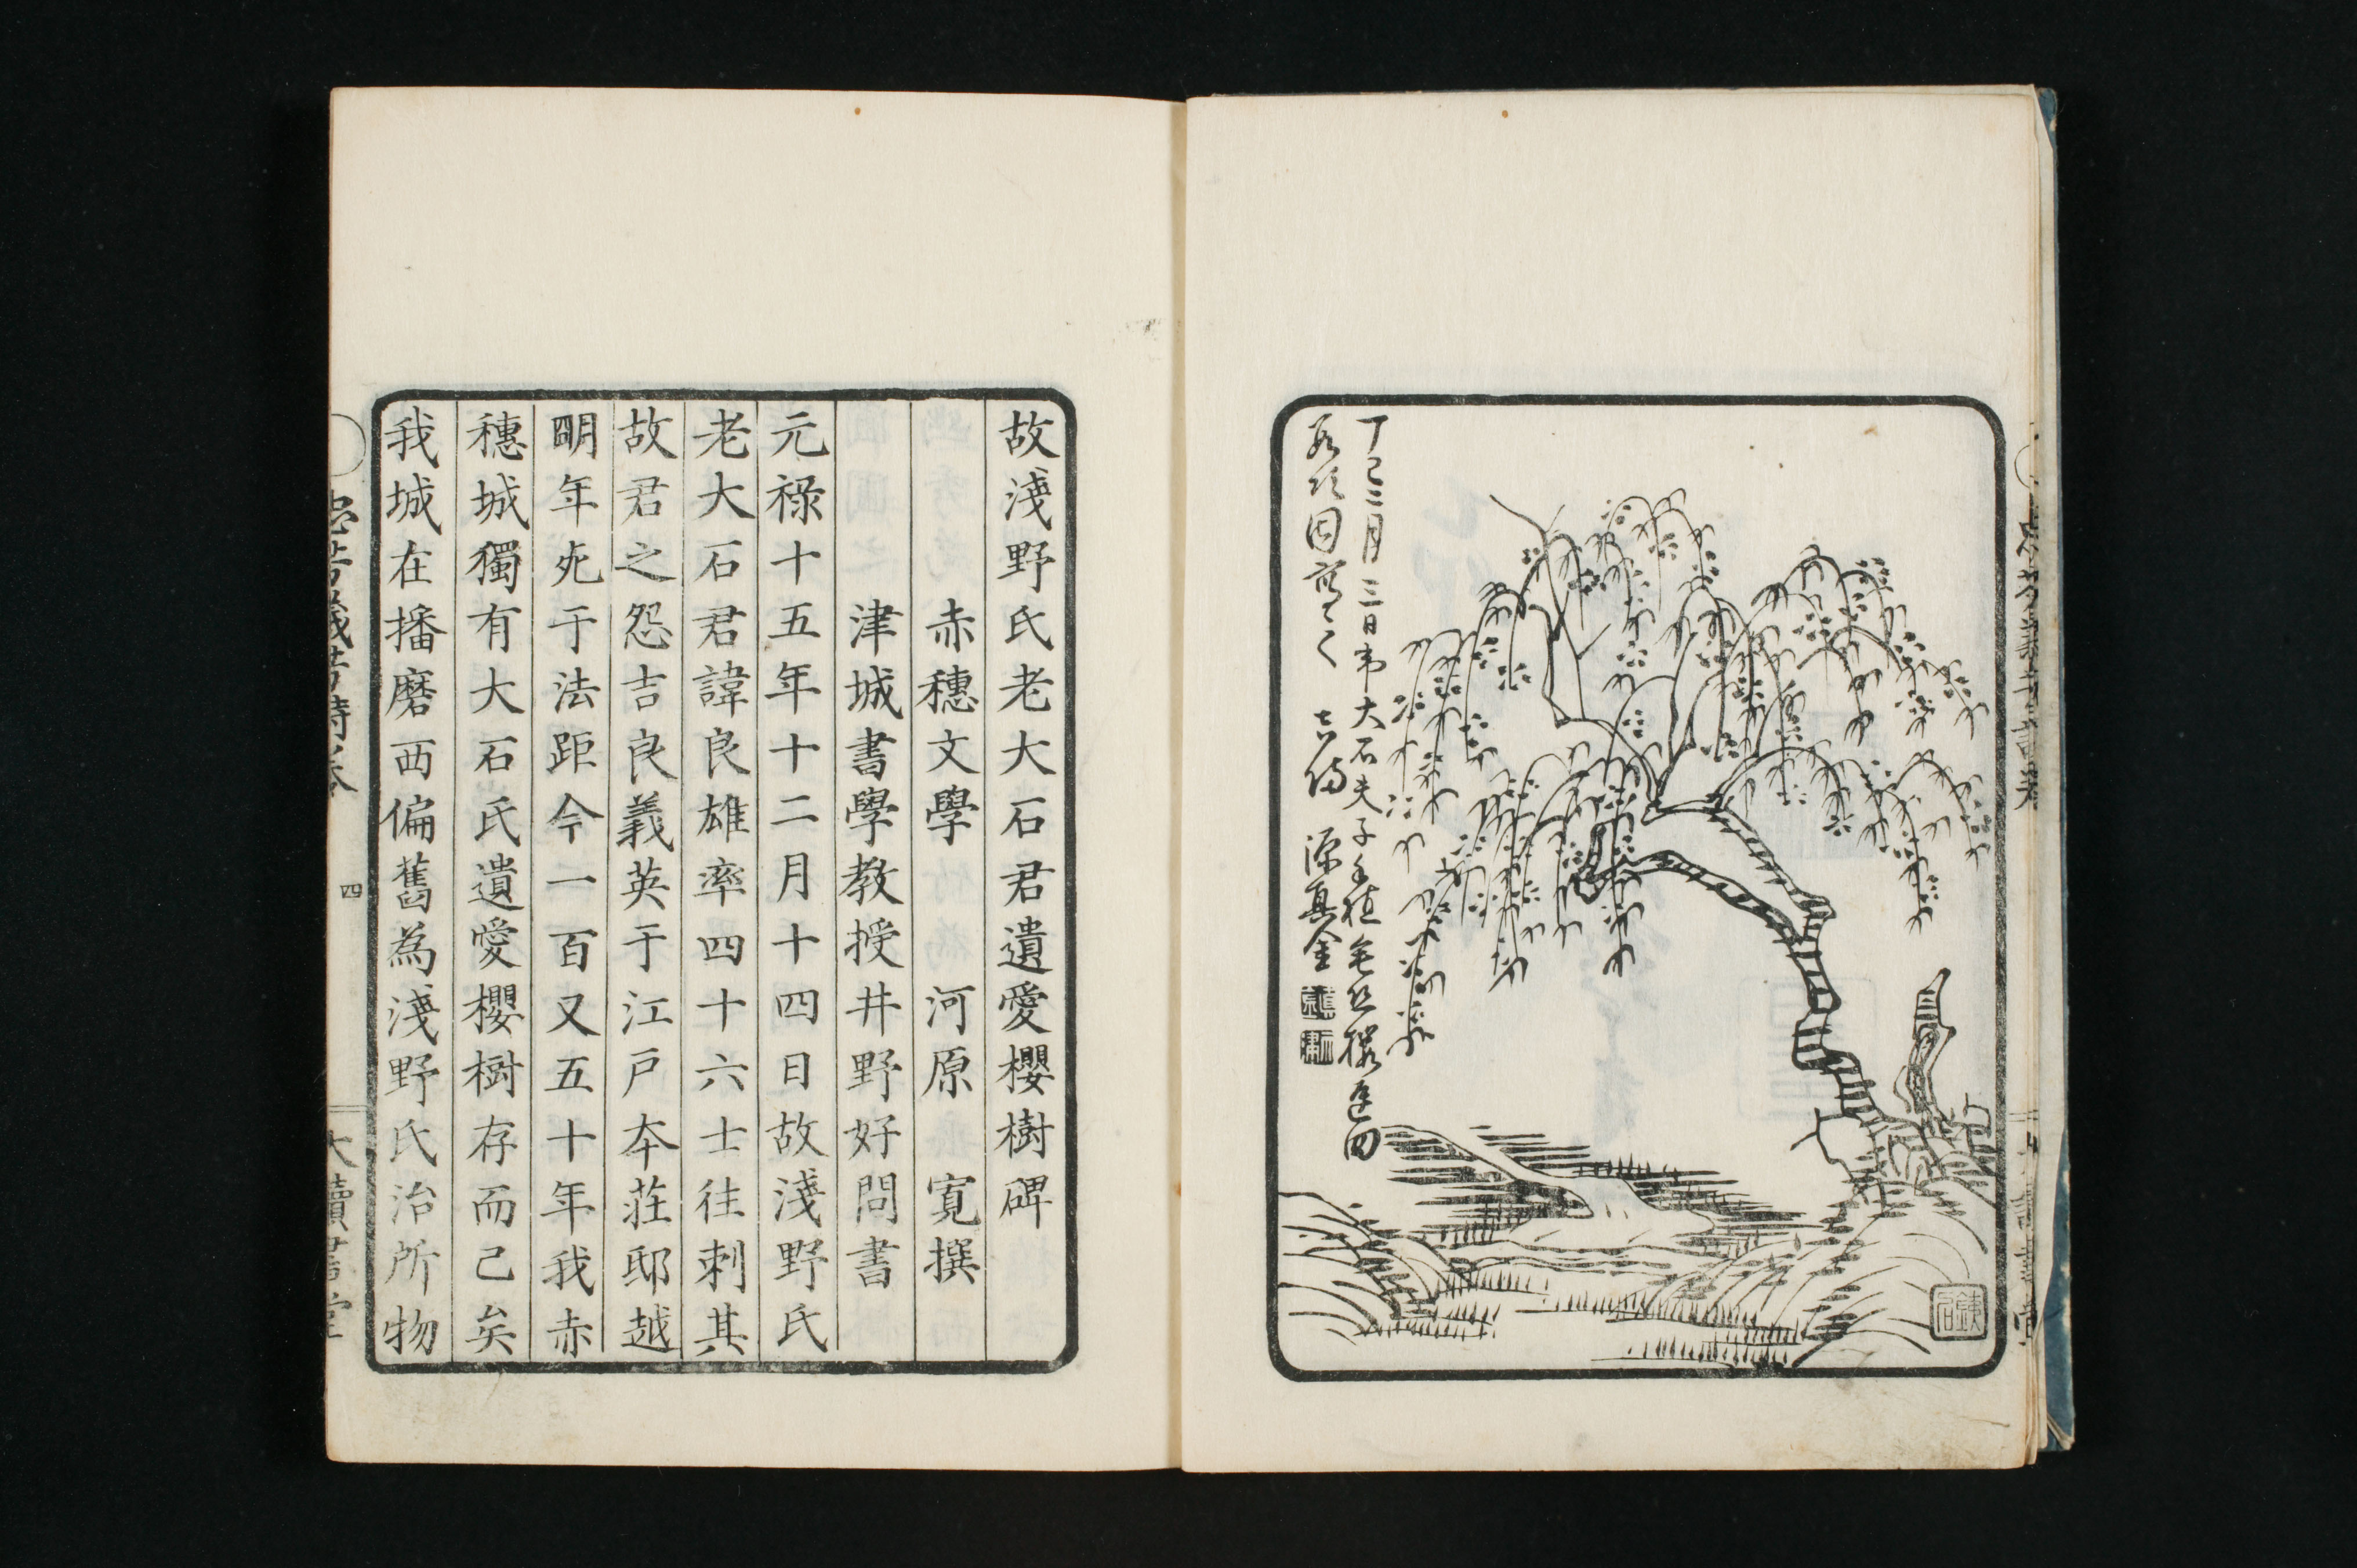 丁巳二月三日弔大石夫子手植垂絲櫻匡四
源真金
鐵石
故淺野氏老大石君遺愛櫻樹碑
赤穗文學 河原 寬撰
津城書學教授井野好問書
元祿十五年十二月十四日故淺野氏
老大石君諱良雄率四十六士往刺其
故君之怨吉良義英于江戶本莊邸越
明年死于法距今一百又五十年我赤
穗城獨有大石氏遺愛櫻樹存而已矣
我城在播磨西偏舊為淺野氏治所物
四